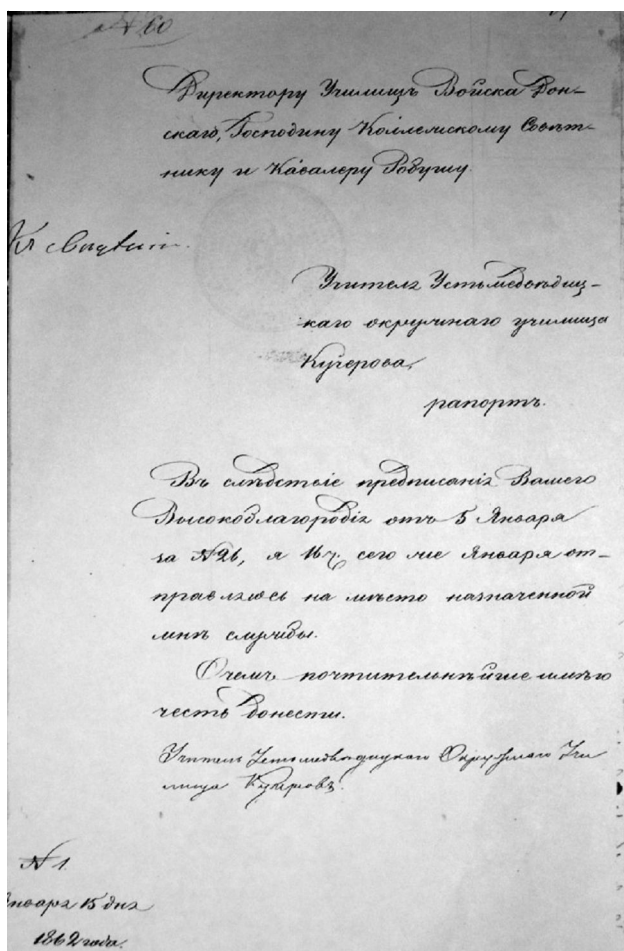 № 60
Директору Училищъ Войска Дон-
скаго, Господину Коллежскому Совѣт-
нику и Кавалеру Робушу.
Учителя Устьмедвѣдиц-
каго окружнаго училища
Кучерова,
рапортъ.
Въ слѣдствіе предписанія Вашего
Высокоблагородія отъ 5 Января
за №26, я 16ч. сего же Января от-
правляюсь на мѣсто назначенной
мнѣ службы.
О чемъ почтительнѣйше имѣю
честь донести.
Учитель Устьмедвѣдицкаго Окружнаго Учи
лища Кучеровъ.
№ 1.
Января 15 дня
1862 года.